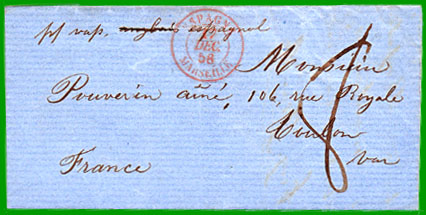 pr vap. anglais espagnol
ESPAGNE
17
DEC.
58
MARSEILLE
Monsieur
Pouverin aîné, 106, rue Royale
Toulon
Var
France
8